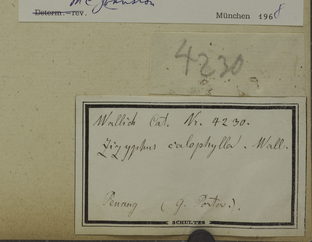 Mc Johnston
Determ.-rev. München 1968
4230
Wallich Cat. Nr. 4230.
Zizyphus calophylla. Wall.
Penang (G. Porter.)